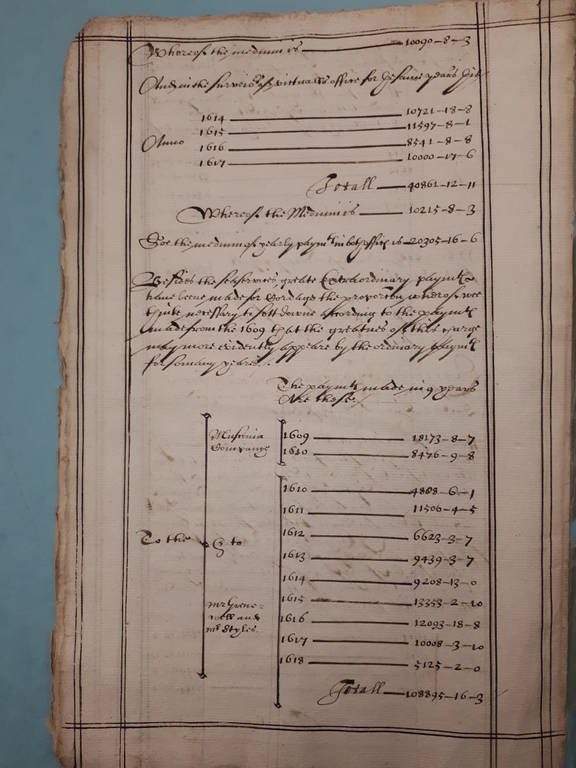 Whereof the medium is — 10090-8-3
And in the surveior of victualls office for the same years hit
1614 — 10721-18-8
1615 — 11597-8-1
Anno
1616 — 8541-8-8
1617 — 10000-17-6
Totall — 40861-12-11
Whereof the Medium is — 10215-8-3
Soe the medium of yearly paymts in both offices is 20305-16-6
Besides the seaservices, greate Extraordinary paymts
have beene made for Cordage the proportion whereof wee
thinke necessary to sett downe according to the paymts
made from the 1609 that the greatnes of this charge
may more evidently appeare by the ordinary paymts
for so many yeares.
The paymts made in 9 years
Are these
Muscovia
Company
1609 — 18173-8-7
1610 — 8476-9-8
1610 — 4888-6-1
1611 — 11506-4-5
1612 — 6623-3-7
To the
& to
1613 — 9439-3-7
1614 — 9208-13-0
mr Grene-
well and
mr Styles
1615 — 13353-2-10
1616 — 12093-18-8
1617 — 10008-3-10
1618 — 5125-2-0
Totall — 108895-16-3